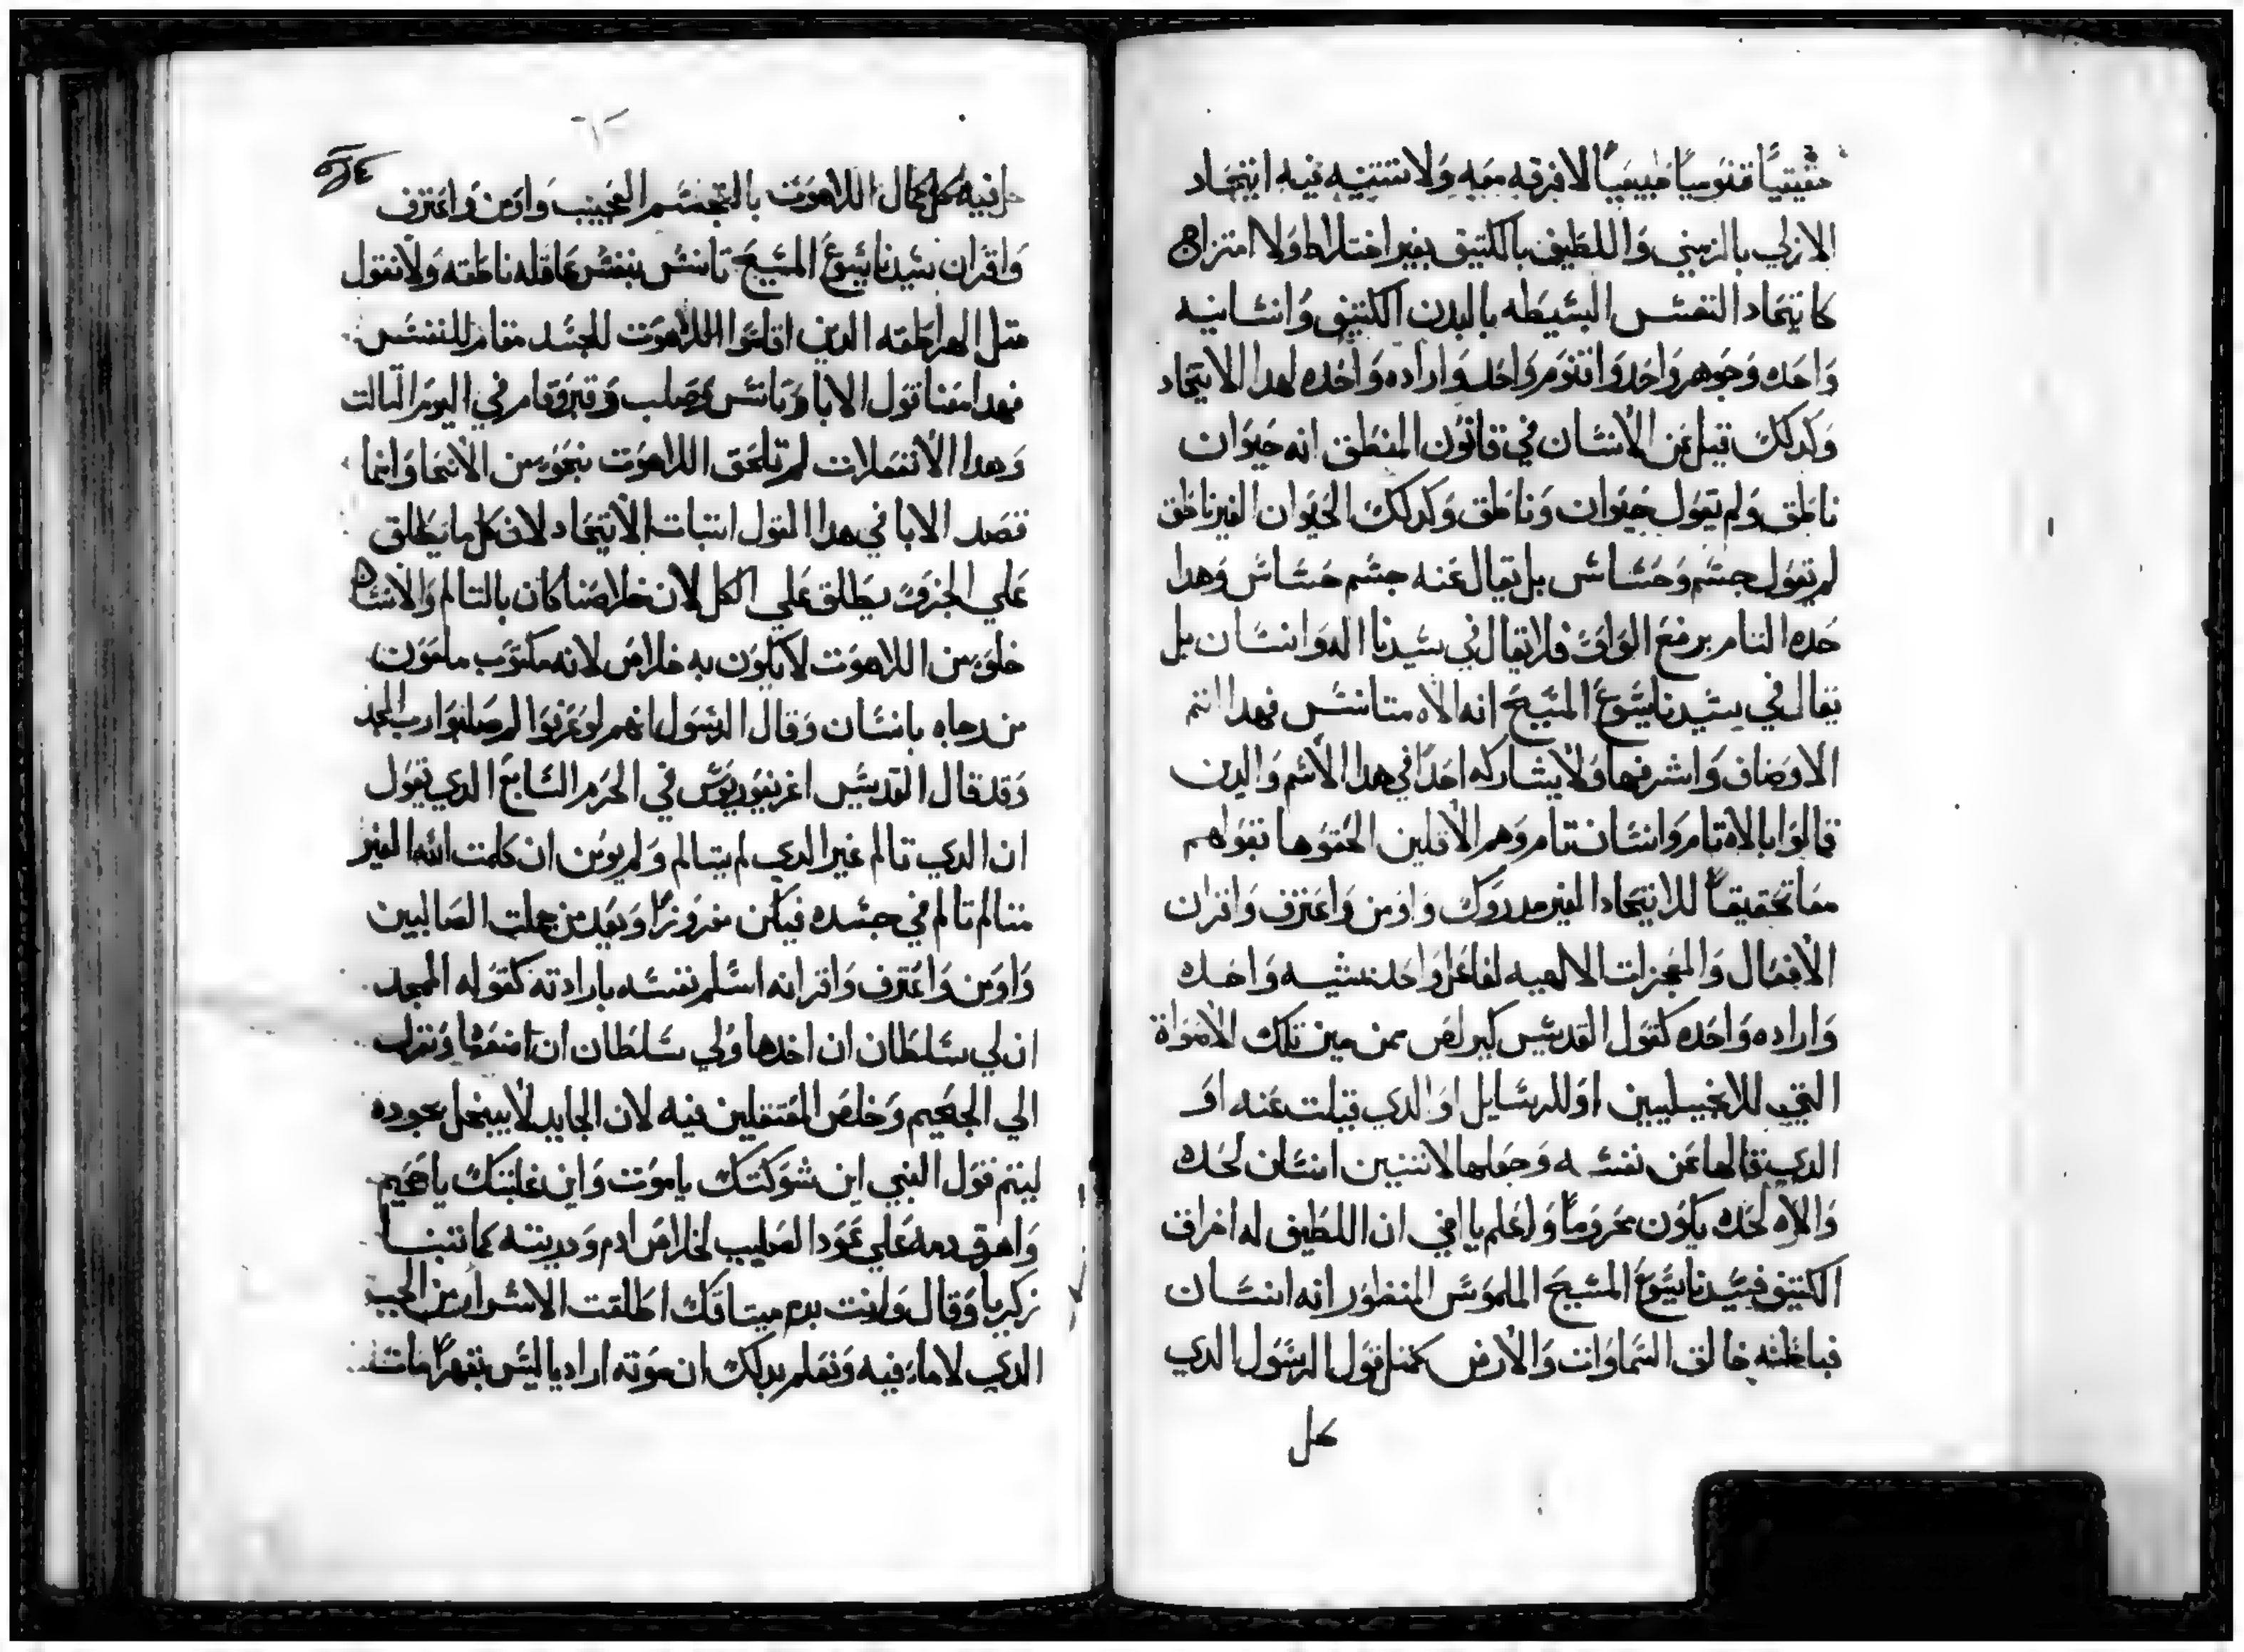 حقيقيًا قنوميًا طبيعيًا لا فرقه معه ولا تتنيه فيه اتحاد
الازلي بالزمني واللطيف بالكتيف بغير اختلاط ولا امتزاج
كاتحاد النفس البسيطه بالبدن الكتيف وانسانيه
واحده وجوهر واحد واقنوم واحد واراده واحده لهدا الاتحاد
وكدلك قيل عن الانسان في قانون المنطق انه حيوان
ناطق ولم تقول حيوان وناطق وكدلك الحيوان الغير ناطق
لم تقول جسم وحساس بل يقال عنه جسم حساس وهدا
حده التام برفع الواو فلا يقال في سيدنا اله وانسان بل
يقال في سيدنا يسوع المسيح انه الاه متانس فهدا اتم
الاوصاف واشرفها ولا يشاركه احدًا في هدا الاسم والدين
قالوا بالاه تام وانسان تام وهم الاقلين الحقوها بقولهم
معًا تحقيقًا للاتحاد الغير مدروك واومن واعترف واقر ان
الافعال والمعجزات الالهيه لفاعل واحد مشيه واحده
واراده واحده كقول القديس كيرلص من ميز تلك الاصواة
التي للانجيليين او للرسايل او الدي قيلت عنه او
الدي قالها عن نفسه وجعلها لاتنين انسان لحده
والاه لحده يكون محرومًا ولعلم يا اخي ان اللطيف له اخراق
الكتيف فسيدنا يسوع المسيح الملموس المنظور انه انسان
فباطنه خالق السماوات والارض كمتل قول الرسول الدي
حل
حل فيه كل كمال اللاهوت بالتجسم العجيب واومن واعترف
واقر ان سيدنا يسوع المسيح تانس بنفس عاقله ناطقه ولا نقول
متل الهراطقه الدين اقاموا اللاهوت للجسد مقام للنفس
فهدا معنا قول الابا وتانس وصلب وقبر وقام في اليوم التالت
وهدا الانفعلات لم تلحق اللاهوت بنحو من الانحا وانما
قصد الابا في هدا القول اتبات الاتحاد لان كل ما يطلق
علي الجزو يطلق علي الكل لان خلاصنا كان بالتالم والانسان
خلو من اللاهوت لا يكون به خلاص لانه مكتوب ملعون
من رجاه بانسان وقال الرسول انهم لو عرفوا لم صلبوا رب المجد
وقد قال القديس اغريغوريوس في الحرم السابع الدي تقول
ان الدي تالم غير الدي لم يتالم ولم يومن ان كلمت الله الغير
متالم تالم في جسده فيكن مفروزًا ويعد من جملت الصالبين
واومن واعترف واقر انه اسلم نفسه بارادته كقوله الممجد
ان لي سلطان ان اخدها ولي سلطان ان اضعها ونزل
الي الجحيم وخلص المعتقلين فيه لان الجايد لا يبخل بجوده
ليتم قول النبي اين شوكتك يا موت واين غلبتك يا جحيم
واهرق دمه علي عود الصليب لخلاص ادم ودريته كما تنبا
زكريا وقال وانت بدم ميتاقك اطلقت الاسرا من الجب
الدي لا ماء فيه وتعلم بدلك ان موته اراديا ليس بقهرًا مات